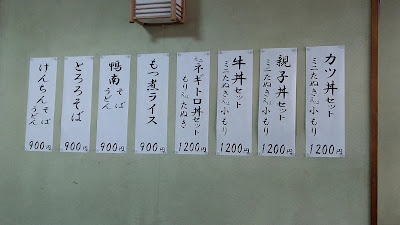 カツ丼セット
ミニたぬき 小もり
1200円
親子丼セット
ミニたぬき 小もり
1200円
牛丼セット
ミニたぬき 小もり
1200円
ミニネギトロ丼セット
もり たぬき
1200円
もつ煮ライス
900円
鴨南そば
うどん
900円
とろろそば
900円
けんちんそば
うどん
900円